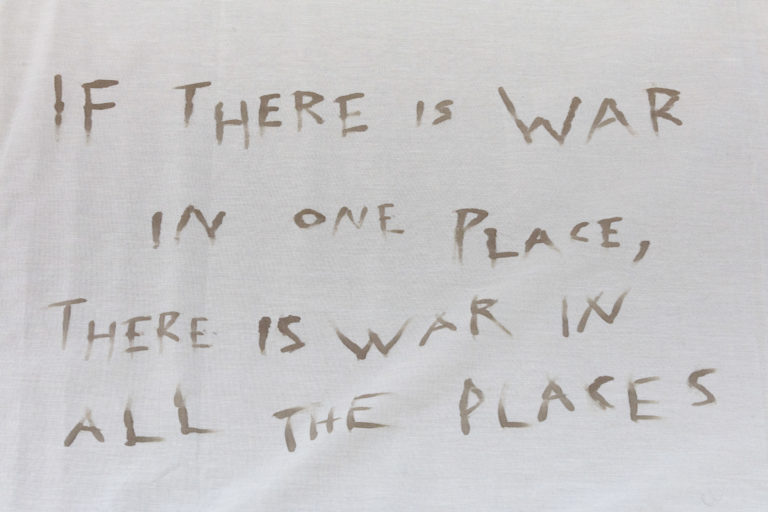 IF THERE IS WAR
IN ONE PLACE,
THERE IS WAR IN
ALL THE PLACES